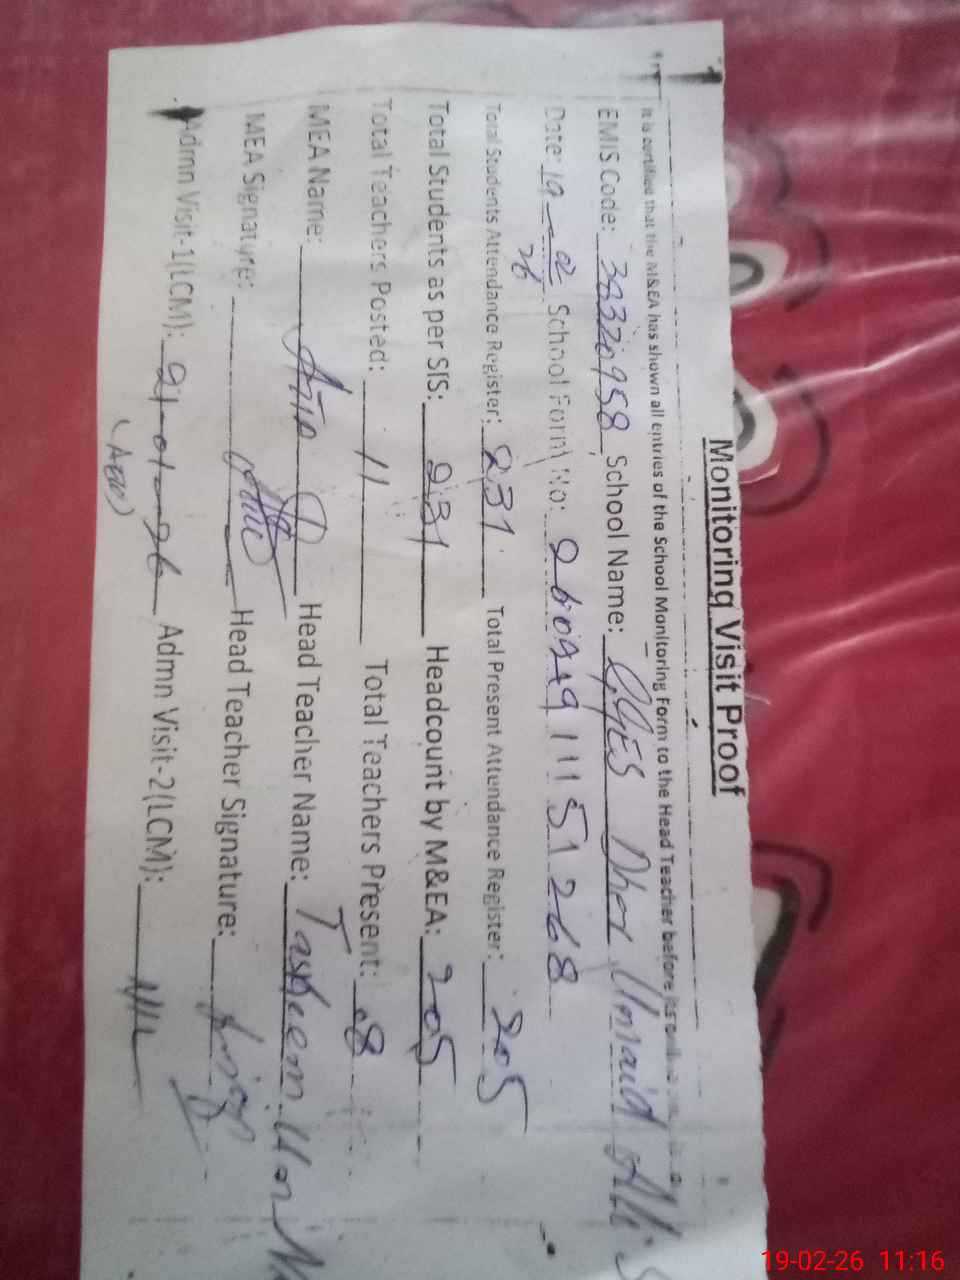 Monitoring Visit Proof
It is certified that the M&EA has shown all entries of the School Monitoring Form to the Head Teacher before its
EMIS Code: 38320958 School Name: GGES Dhok Umaid Ali S
Date: 19-02-26 School Form No: 2609491115 1268
Total Students Attendance Register: 231 Total Present Attendance Register: 205
Total Students as per SIS: 231 Headcount by M&EA: 205
Total Teachers Posted: 11 Total Teachers Present: 8
MEA Name: Head Teacher Name: Tasneem
MEA Signature: Head Teacher Signature:
Admn Visit-1(LCM): 21-01-26 Admn Visit-2(LCM):
(AEO)
19-02-26 11:16